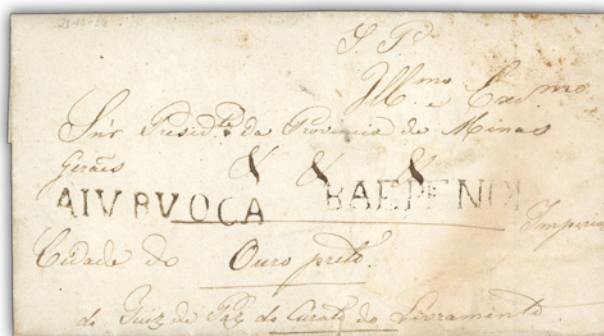 21-10-34
S. P.
Ill.mo e Exc.mo
Snr. Presid.te da Provincia de Minas
Geraes & & &
AIVRVOCA BAEPENDI
Imperial
Cidade do Ouro preto.
do Juiz de Paz do Curato do Livramento.